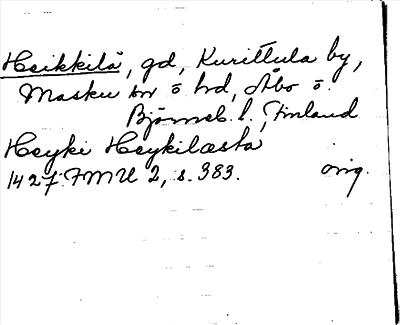 Heikkilä, gd, Kurittula by,
Masku sn o hd, Åbo o.
Björneb. l., Finland
Heyki Heykilæsta
1427 FMU 2, s. 383. orig.